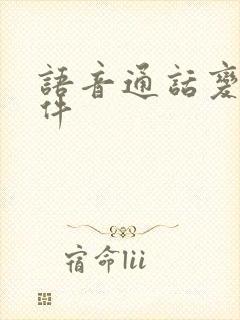 語音通話變
件
宿命lii